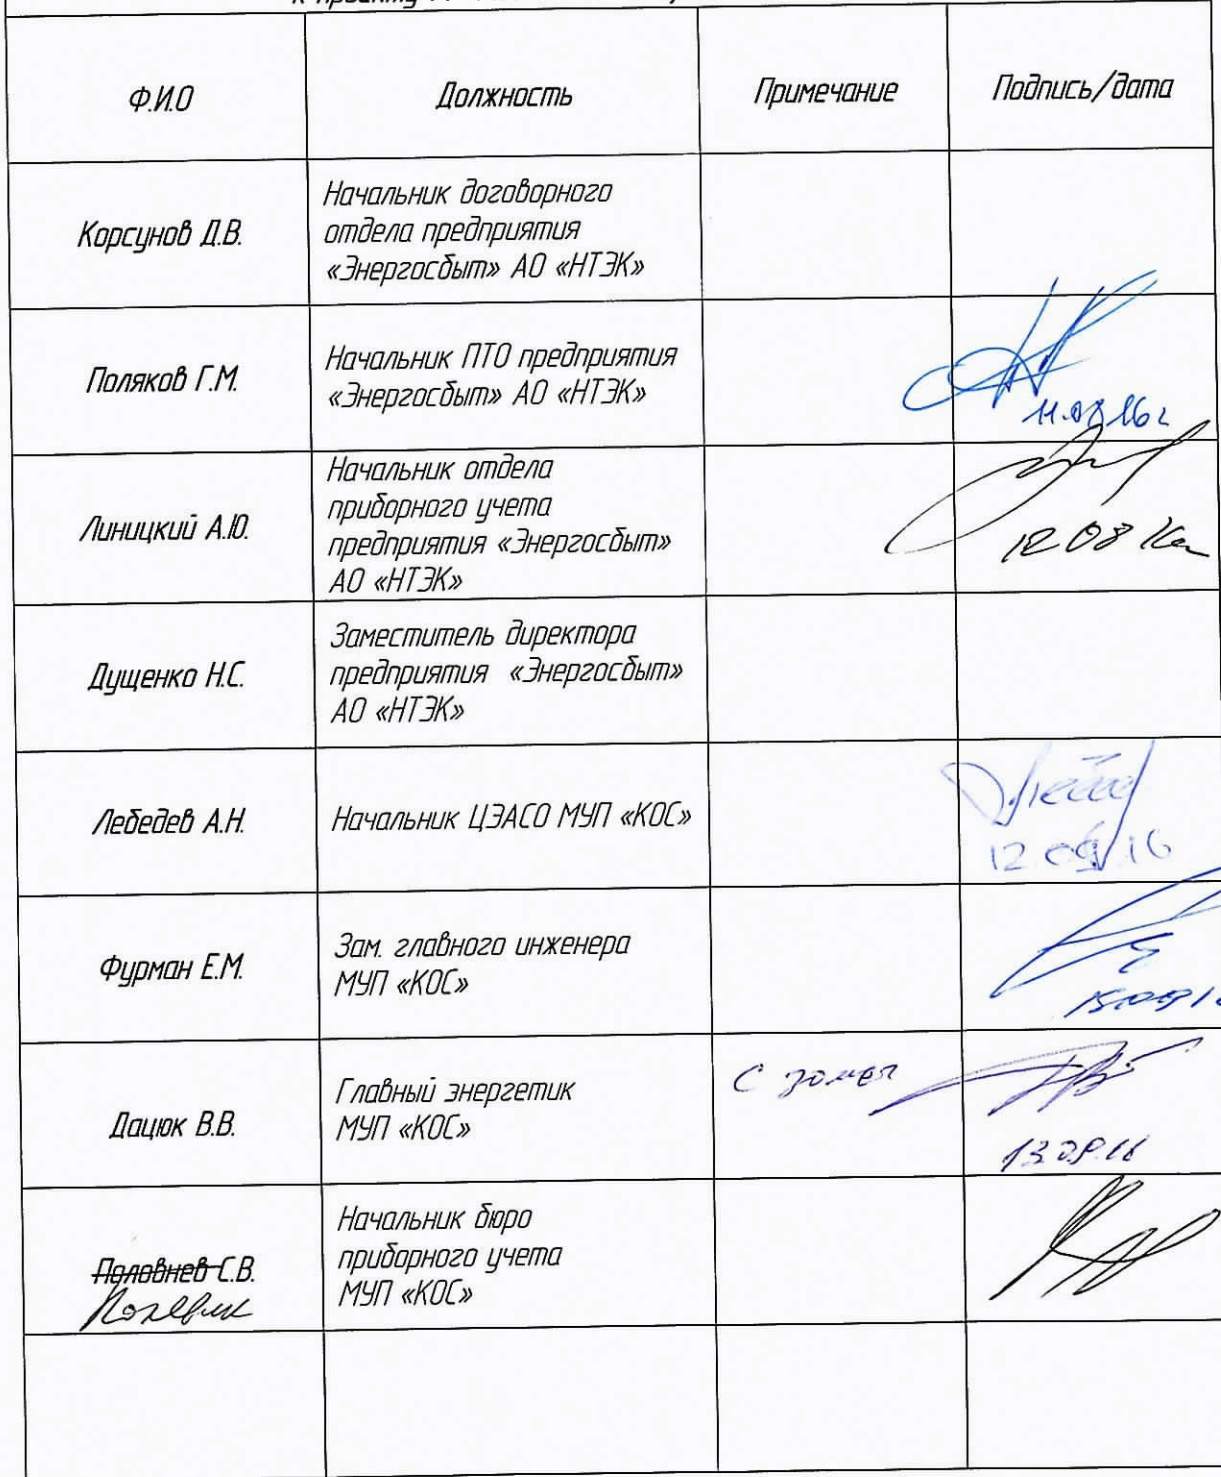 к проекту
Ф.И.О
Должность
Примечание
Подпись/дата
Корсунов Д.В.
Начальник договорного
отдела предприятия
«Энергосбыт» АО «НТЭК»
Поляков Г.М.
Начальник ПТО предприятия
«Энергосбыт» АО «НТЭК»
Линицкий А.Ю.
Начальник отдела
приборного учета
предприятия «Энергосбыт»
АО «НТЭК»
12 08
Дущенко Н.С.
Заместитель директора
предприятия «Энергосбыт»
АО «НТЭК»
Лебедев А.Н.
Начальник ЦЭАСО МУП «КОС»
12 09 16
Фурман Е.М.
Зам. главного инженера
МУП «КОС»
Дацюк В.В.
Главный энергетик
МУП «КОС»
С замеч
13.09.16
Половнев С.В.
Начальник бюро
приборного учета
МУП «КОС»